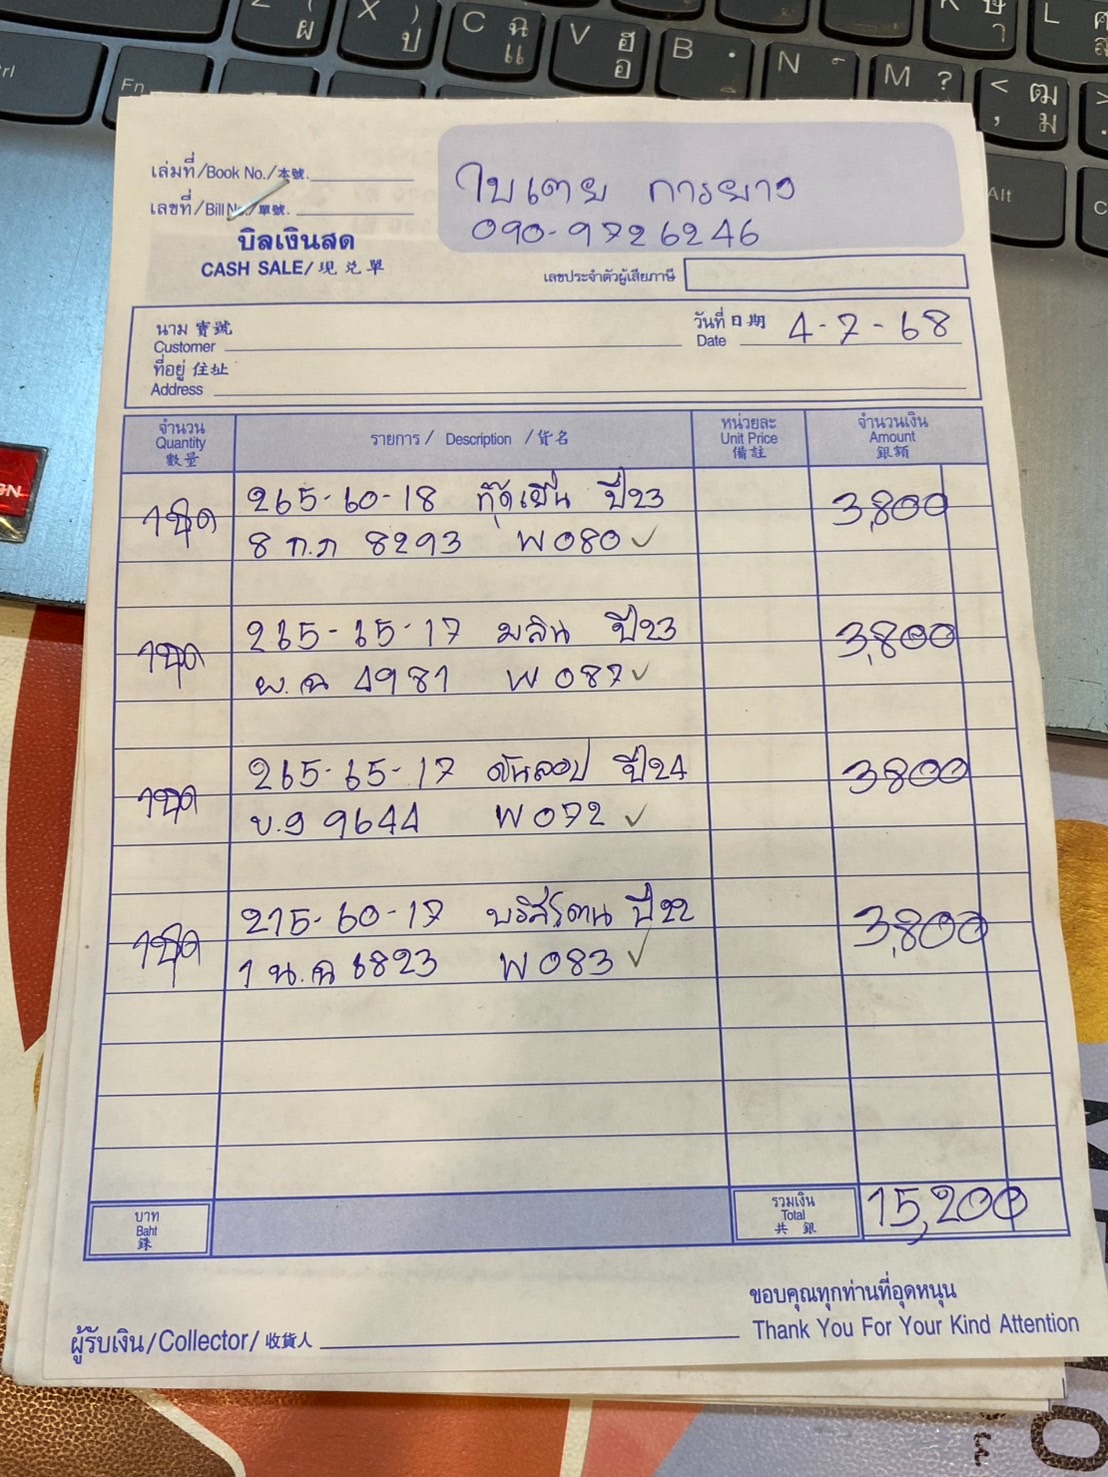 เล่มที่/Book No./本號.
เลขที่/Bill No./單號.
บิลเงินสด
CASH SALE/現兑單
ใบเตย การยาง
090-9726246
เลขประจำตัวผู้เสียภาษี
นาม 寶號
Customer
วันที่ 日期
Date
4-7-68
ที่อยู่ 住址
Address
จำนวน
Quantity
數量
รายการ / Description / 貨名
หน่วยละ
Unit Price
備註
จำนวนเงิน
Amount
銀額
1ชุด 265-60-18 กู๊ดเยีย ปี23 3,800
8 ก.ภ 8293 พ080 ✓
1ชุด 265-65-17 มลิน ปี23 3,800
ผ.ฉ 4981 พ087 ✓
1ชุด 265-65-17 ดันลอป ปี24 3800
บ.9 9644 พ072 ✓
1ชุด 215-60-17 บริสโตน ปี22 3,800
1 น.ฉ 6823 พ083 ✓
บาท
Baht
銖
รวมเงิน
Total
共銀
15,200
ขอบคุณทุกท่านที่อุดหนุน
ผู้รับเงิน/Collector/收貨人
Thank You For Your Kind Attention